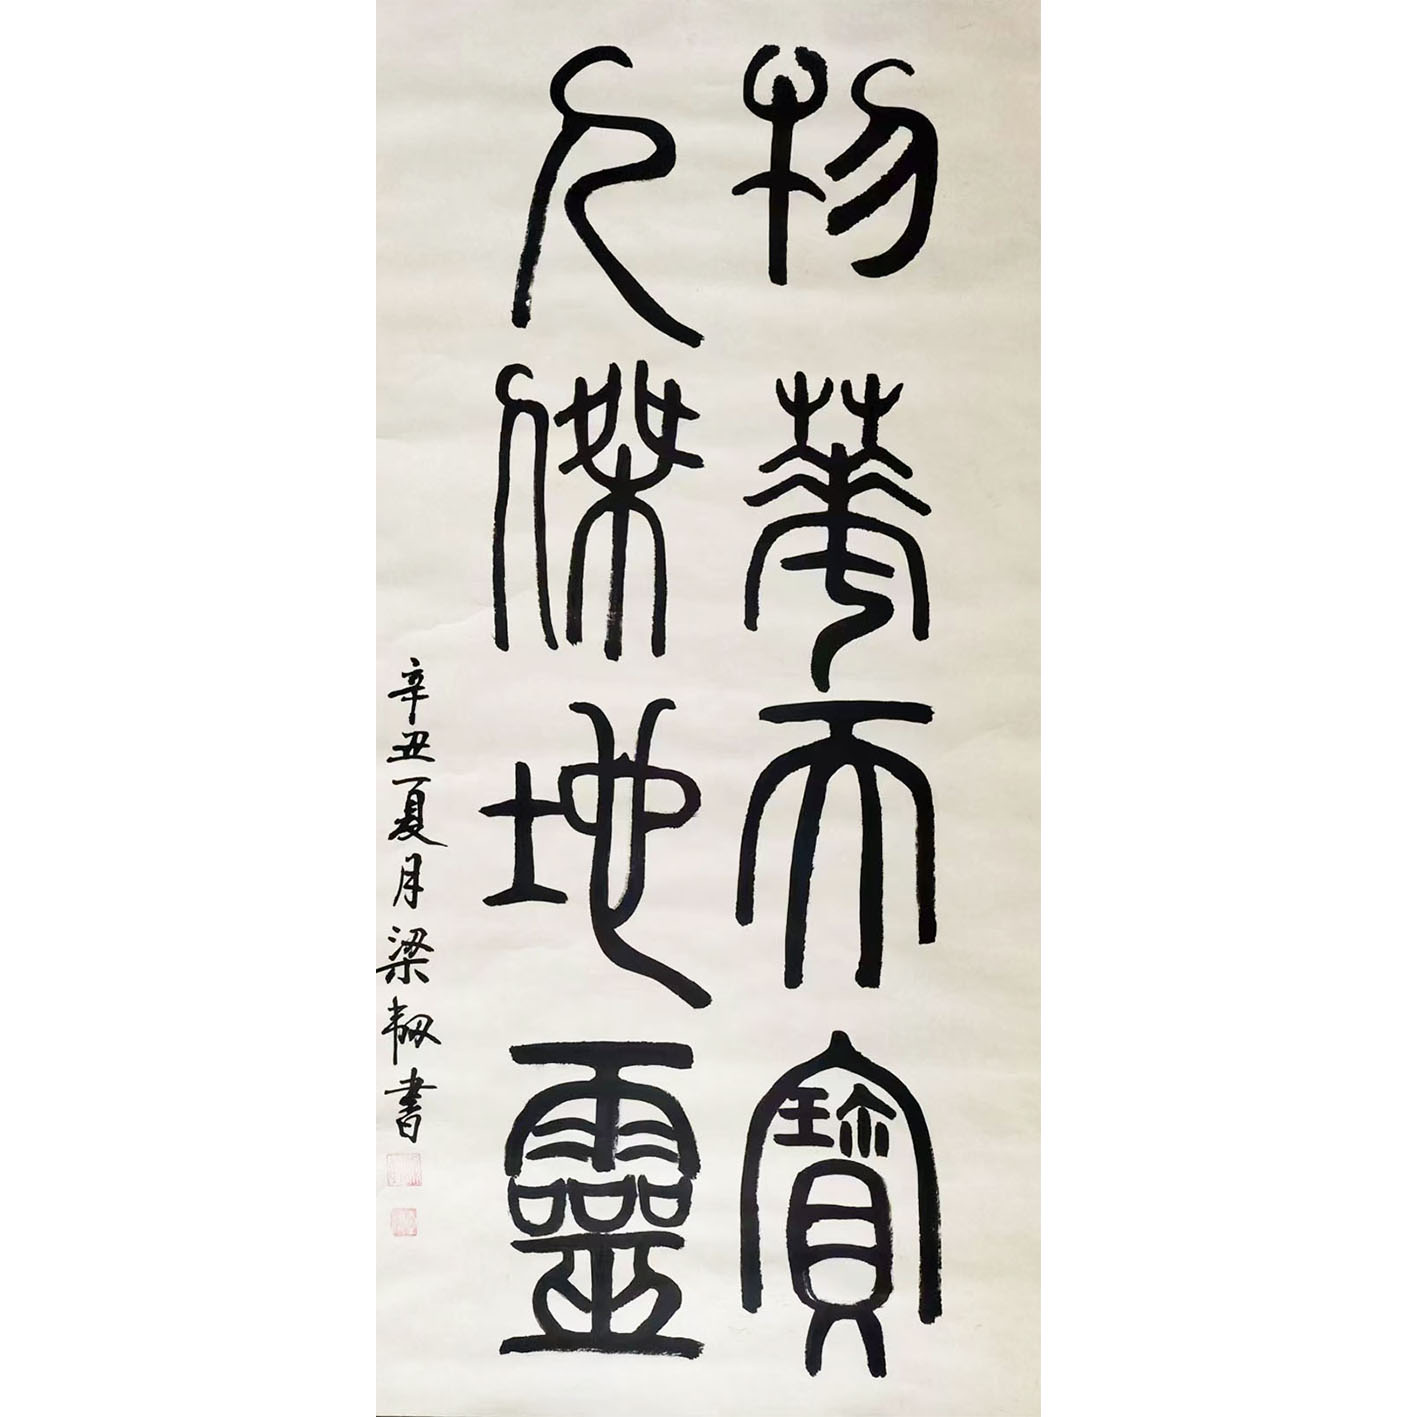 物華天寶
人傑地靈
辛丑夏月梁韌書